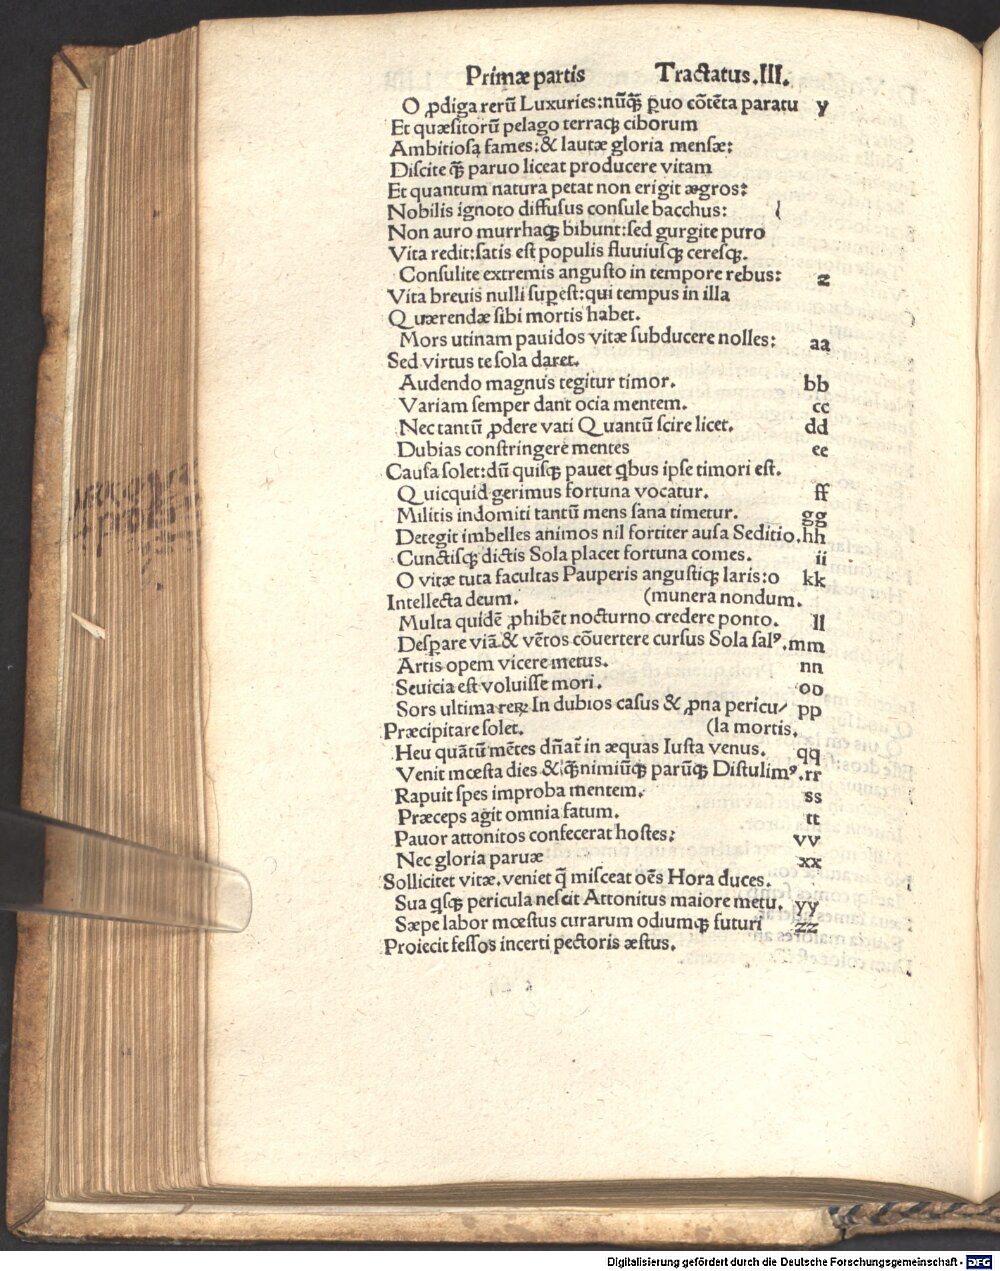 Primæ partis Tractatus.III.
O ꝓdiga rerũ Luxuries:nũꝗ̃ ꝑuo cõtẽta paratu y
Et quæsitorũ pelago terraqꝫ ciborum
Ambitiosa fames:& lautæ gloria mensæ:
Discite ꝗ̃ paruo liceat producere vitam
Et quantum natura petat non erigit ægros:
Nobilis ignoto diffusus consule bacchus:
Non auro murrhaqꝫ bibunt:sed gurgite puro
Vita redit:satis est populis fluuiusqꝫ ceresqꝫ.
Consulite extremis angusto in tempore rebus: z
Vita breuis nulli suꝑest:qui tempus in illa
Quærendæ sibi mortis habet.
Mors utinam pauidos vitæ subducere nolles: aa
Sed virtus te sola daret.
Audendo magnus tegitur timor. bb
Variam semper dant ocia mentem. cc
Nec tantũ ꝓdere vati Quantũ scire licet. dd
Dubias constringere mentes ee
Causa solet:dũ quisqꝫ pauet ꝗbus ipse timori est.
Quicquid gerimus fortuna vocatur. ff
Militis indomiti tantũ mens sana timetur. gg
Detegit imbelles animos nil fortiter ausa Seditio.hh
Cunctisqꝫ dictis Sola placet fortuna comes. ii
O vitæ tuta facultas Pauperis angustiqꝫ laris:o kk
Intellecta deum. (munera nondum.
Multa quidẽ ꝓhibẽt nocturno credere ponto. ll
Desꝑare viã & vẽtos cõuertere cursus Sola salꝰ.mm
Artis opem vicere metus. nn
Seuicia est voluisse mori. oo
Sors ultima reꝝ In dubios casus & ꝓna pericu/ pp
Præcipitare solet. (la mortis.
Heu quãtũ mẽtes dñat̃ in æquas Iusta venus. qq
Venit mœsta dies & ꝗ̃ nimiũqꝫ parũqꝫ Distulimꝰ.rr
Rapuit spes improba mentem. ss
Præceps agit omnia fatum. tt
Pauor attonitos confecerat hostes: vv
Nec gloria paruæ xx
Sollicitet vitæ.veniet q̃ misceat oẽs Hora duces.
Sua ꝗsqꝫ pericula nescit Attonitus maiore metu. yy
Sæpe labor mœstus curarum odiumqꝫ futuri zz
Proiecit fessos incerti pectoris æstus.
Digitalisierung gefördert durch die Deutsche Forschungsgemeinschaft - DFG